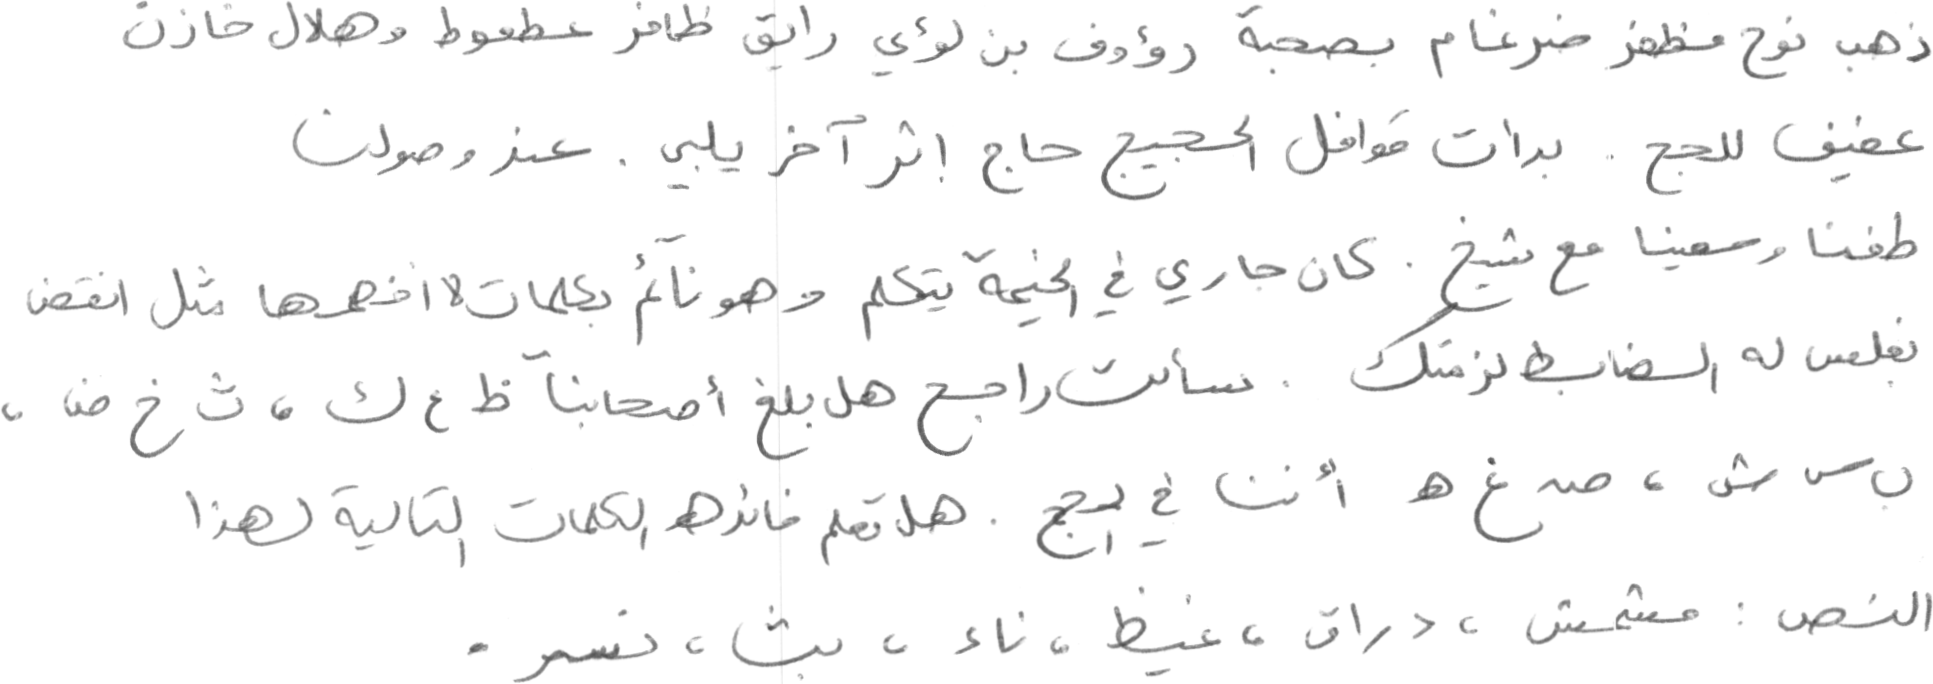 ذهب نوح مظفر ضرغام بصحبة رؤوف بن لؤي رايق ظافر عطعوط وهلال خازن
عفيف للحج . بدأت قوافل الحجيج حاج إثر آخر يلبي . عند وصولنا
طفنا وسعينا مع شيخ . كان جاري في الخيمة يتكلم وهو نائم بكلمات لا أفهمها مثل انقض
بغلس له الضابط لزمتك . سألت راجح هل بلغ أصحابنا ظ ع ك ، ث خ ض ،
ب س ش ، صه غ ه أننا في الحج . هل تعلم فائدة الكلمات التالية لهذا
النص : مشمش ، دراق ، غيظ ، ناء ، بث ، نسر .